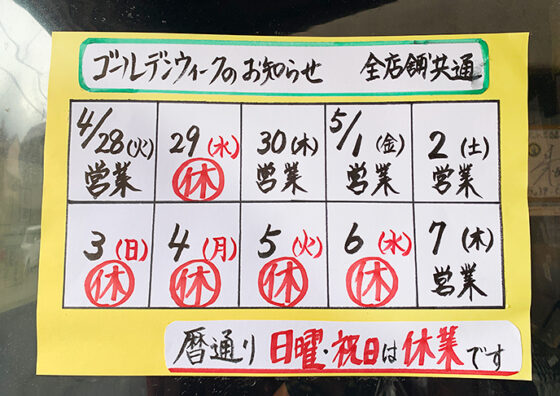 ゴールデンウィークのお知らせ 全店舗共通
4/28(火) 29(水) 30(木) 5/1(金) 2(土)
営業 休 営業 営業 営業
3(日) 4(月) 5(火) 6(水) 7(木)
休 休 休 休 営業
暦通り 日曜・祝日は休業です